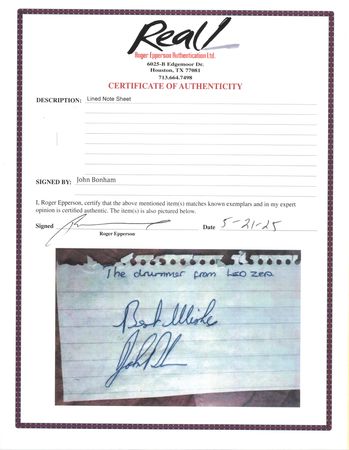 Real!
Roger Epperson Authentication Ltd.
6025-B Edgemoor Dr.
Houston, TX 77081
713.664.7498
CERTIFICATE OF AUTHENTICITY
DESCRIPTION: Lined Note Sheet
SIGNED BY: John Bonham
I, Roger Epperson, certify that the above mentioned item(s) matches known exemplars and in my expert
opinion is certified authentic. The item(s) is also pictured below.
Signed Date 5-21-25
Roger Epperson
The drummer from Led Zep
Best Wishes
John B